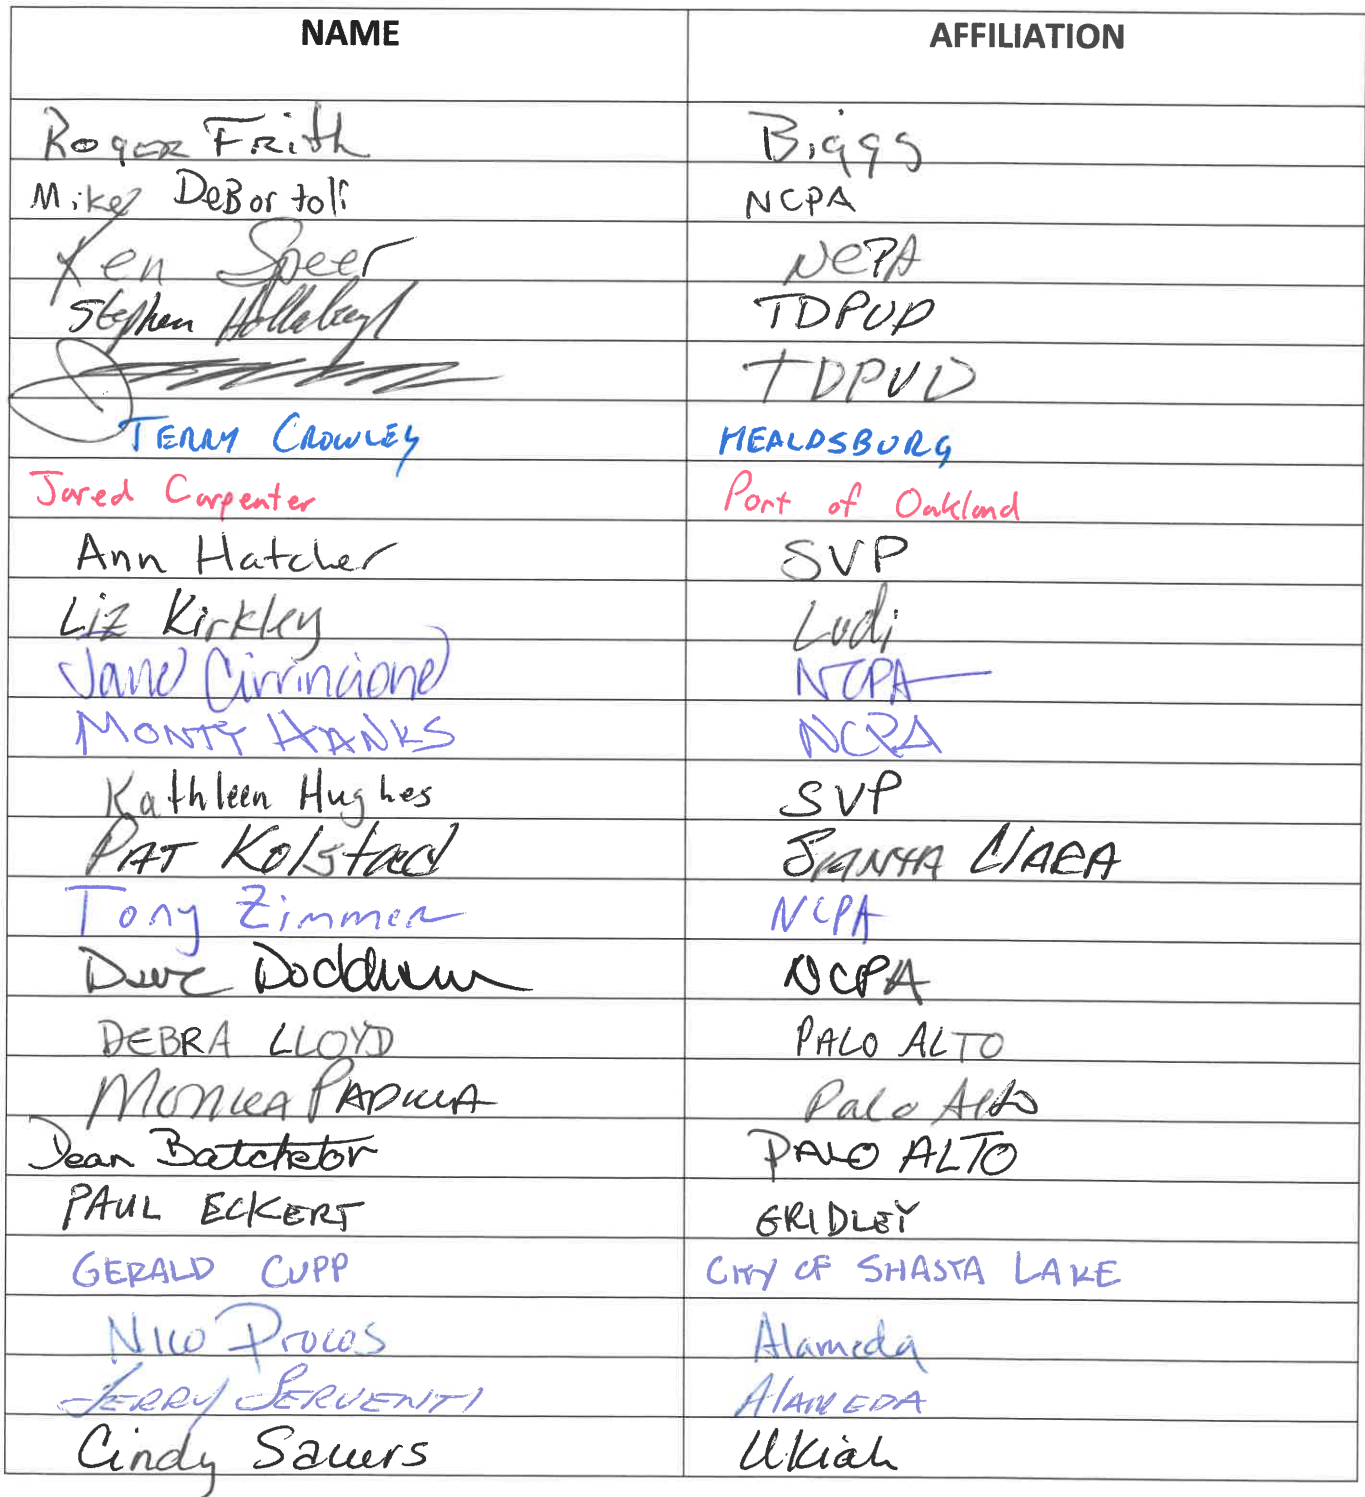 NAME AFFILIATION
Roger Frith Biggs
Mike DeBortoli NCPA
Ken Speer NCPA
Stephen Hollabaugh TDPUD
TDPUD
TERRY CROWLEY HEALDSBURG
Jared Carpenter Port of Oakland
Ann Hatcher SVP
Liz Kirkley Lodi
Jane Cirrincione NCPA
MONTY HANKS NCPA
Kathleen Hughes SVP
PAT Kolstad SANTA ClARA
Tony Zimmer NCPA
Dave Dockham NCPA
DEBRA LLOYD PALO ALTO
Monica PADILLA Palo Alto
Dean Batchelor PALO ALTO
PAUL ECKERT GRIDLEY
GERALD CUPP CITY OF SHASTA LAKE
NICO Procos Alameda
JERRY SERVENTI AlAMEDA
Cindy Sauers Ukiah